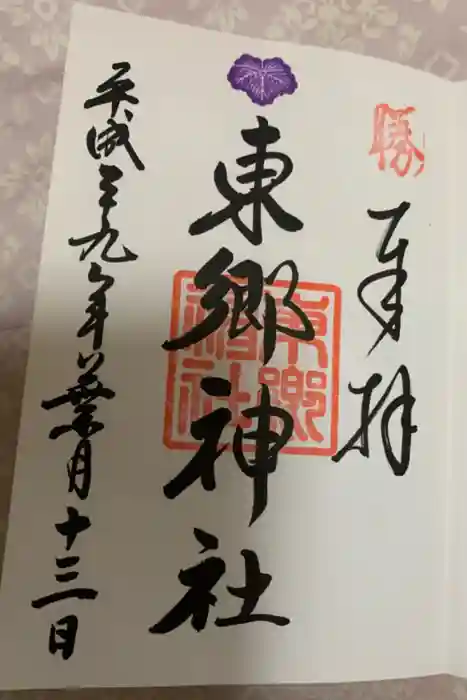 勝
奉拝
東郷神社
東郷神社
平成二九年葉月十三日